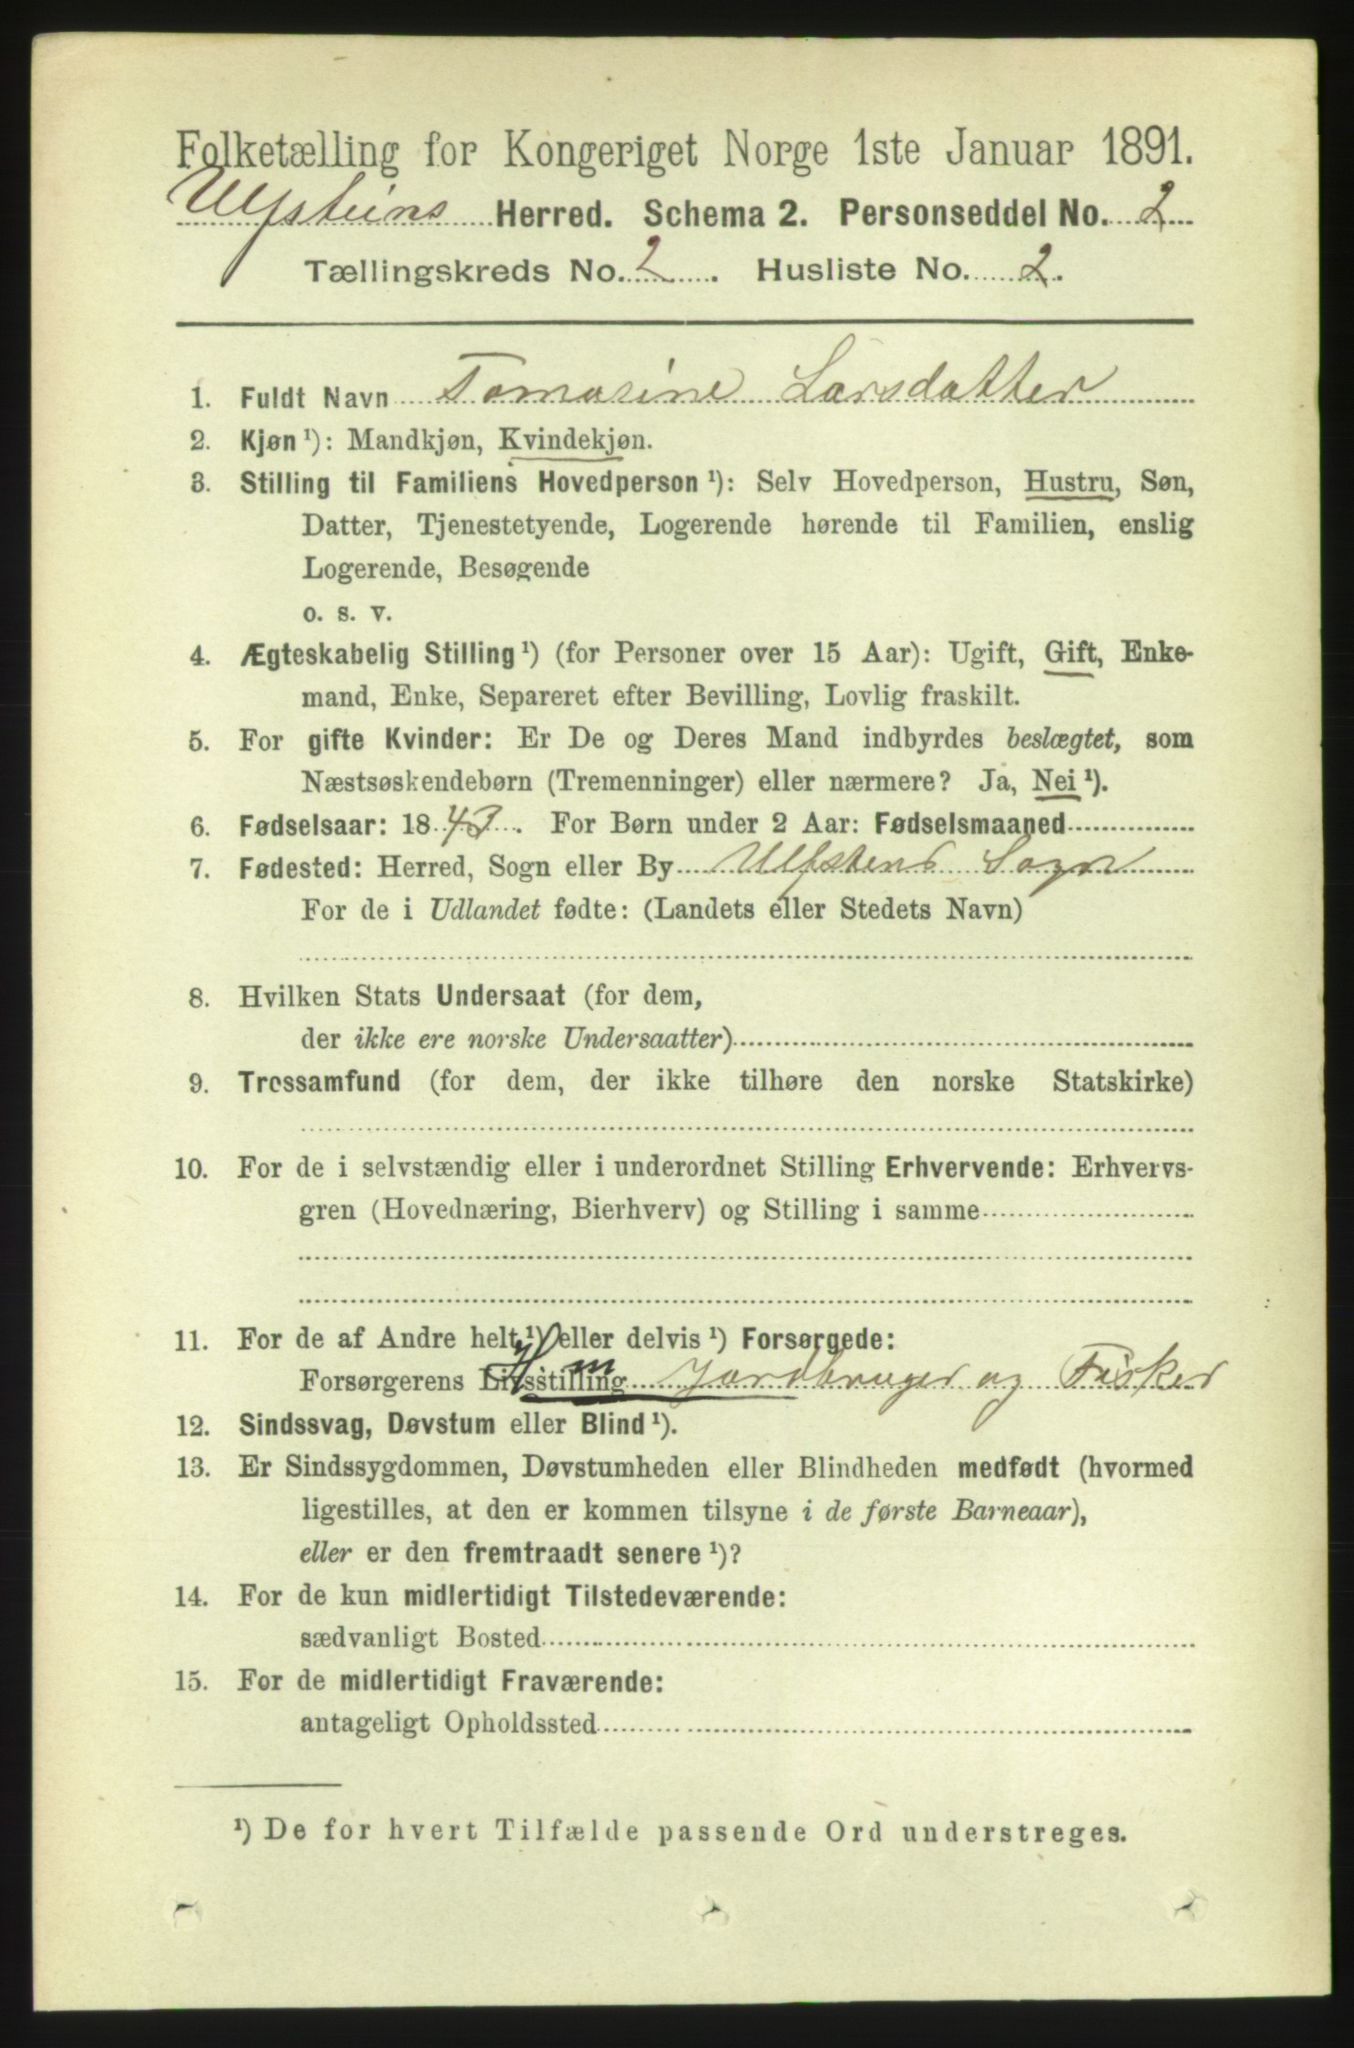 Folketælling for Kongeriget Norge 1ste Januar 1891.
Ulfsteins Herred. Schema 2. Personseddel No. 2
Tællingskreds No. 2. Husliste No. 2.
1. Fuldt Navn Tomasine Larsdatter
2. Kjøn ¹): Mandkjøn, Kvindekjøn.
3. Stilling til Familiens Hovedperson ¹): Selv Hovedperson, Hustru, Søn,
Datter, Tjenestetyende, Logerende hørende til Familien, enslig
Logerende, Besøgende
o. s. v.
4. Ægteskabelig Stilling ¹) (for Personer over 15 Aar): Ugift, Gift, Enke-
mand, Enke, Separeret efter Bevilling, Lovlig fraskilt.
5. For gifte Kvinder: Er De og Deres Mand indbyrdes beslægtet, som
Næstsøskendebørn (Tremenninger) eller nærmere? Ja, Nei ¹).
6. Fødselsaar: 1843. For Børn under 2 Aar: Fødselsmaaned
7. Fødested: Herred, Sogn eller By Ulfstens Sogn
For de i Udlandet fødte: (Landets eller Stedets Navn)
8. Hvilken Stats Undersaat (for dem,
der ikke ere norske Undersaatter)
9. Trossamfund (for dem, der ikke tilhøre den norske Statskirke)
10. For de i selvstændig eller i underordnet Stilling Erhvervende: Erhvervs-
gren (Hovednæring, Bierhverv) og Stilling i samme
11. For de af Andre helt ¹) eller delvis ¹) Forsørgede:
Forsørgerens Livsstilling Jordbruger og Fisker
12. Sindssvag, Døvstum eller Blind ¹).
13. Er Sindssygdommen, Døvstumheden eller Blindheden medfødt (hvormed
ligestilles, at den er kommen tilsyne i de første Barneaar),
eller er den fremtraadt senere ¹)?
14. For de kun midlertidigt Tilstedeværende:
sædvanligt Bosted
15. For de midlertidigt Fraværende:
antageligt Opholdssted
¹) De for hvert Tilfælde passende Ord understreges.